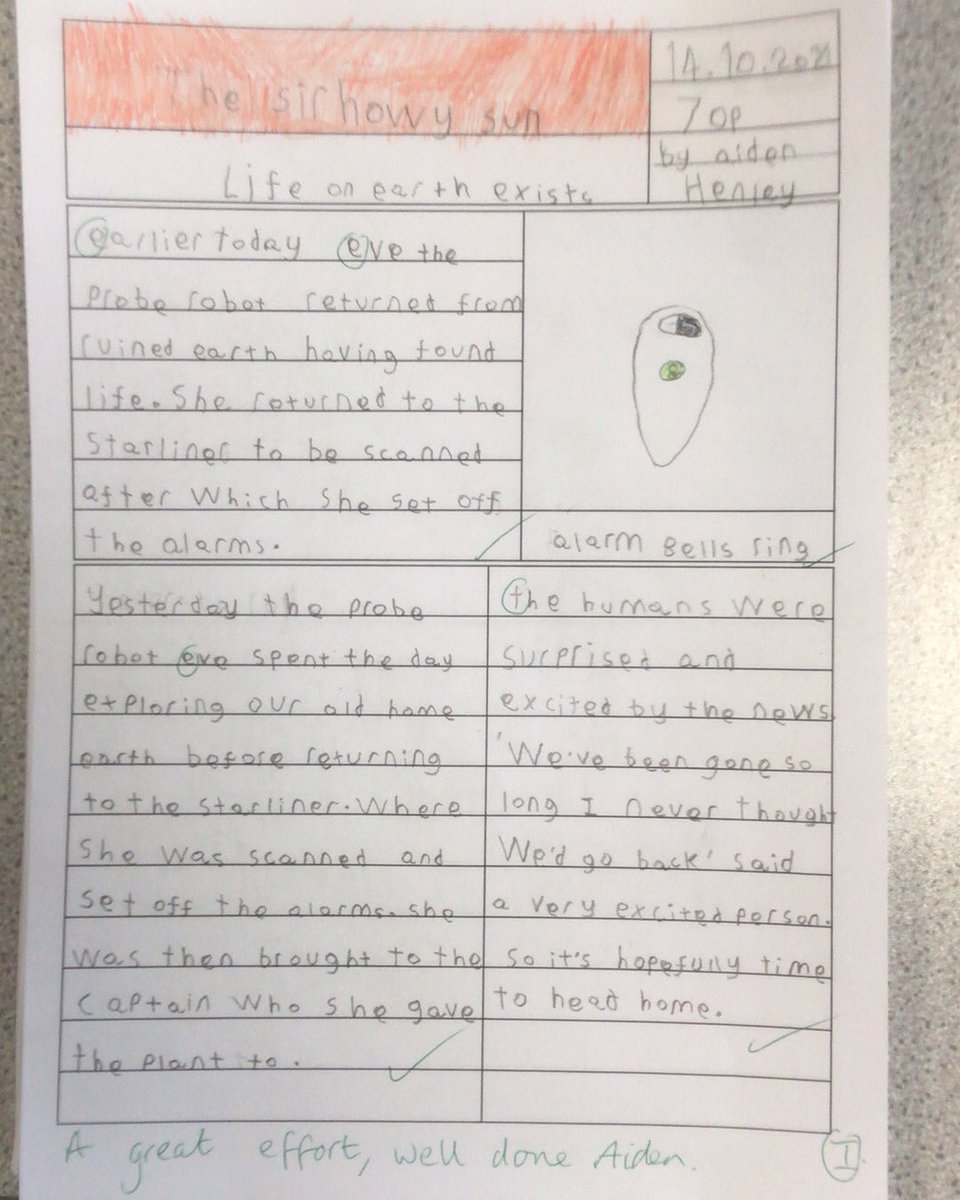 The sirhowy sun
14.10.2021
70p
by aiden
Henley
Life on earth exists
earlier today eve the
probe robot returned from
ruined earth having found
life. She returned to the
Starliner to be scanned
after Which She set off
the alarms.
alarm Bells ring
Yesterday the probe
robot eve spent the day
exploring our old home
earth before returning
to the starliner. Where
She was scanned and
set off the alarms. she
was then brought to the
captain who she gave
the plant to.
the humans were
surprised and
excited by the news
'We've been gone so
long I never thought
We'd go back' said
a very excited person.
so it's hopefuly time
to head home.
A great effort, well done Aiden.
I